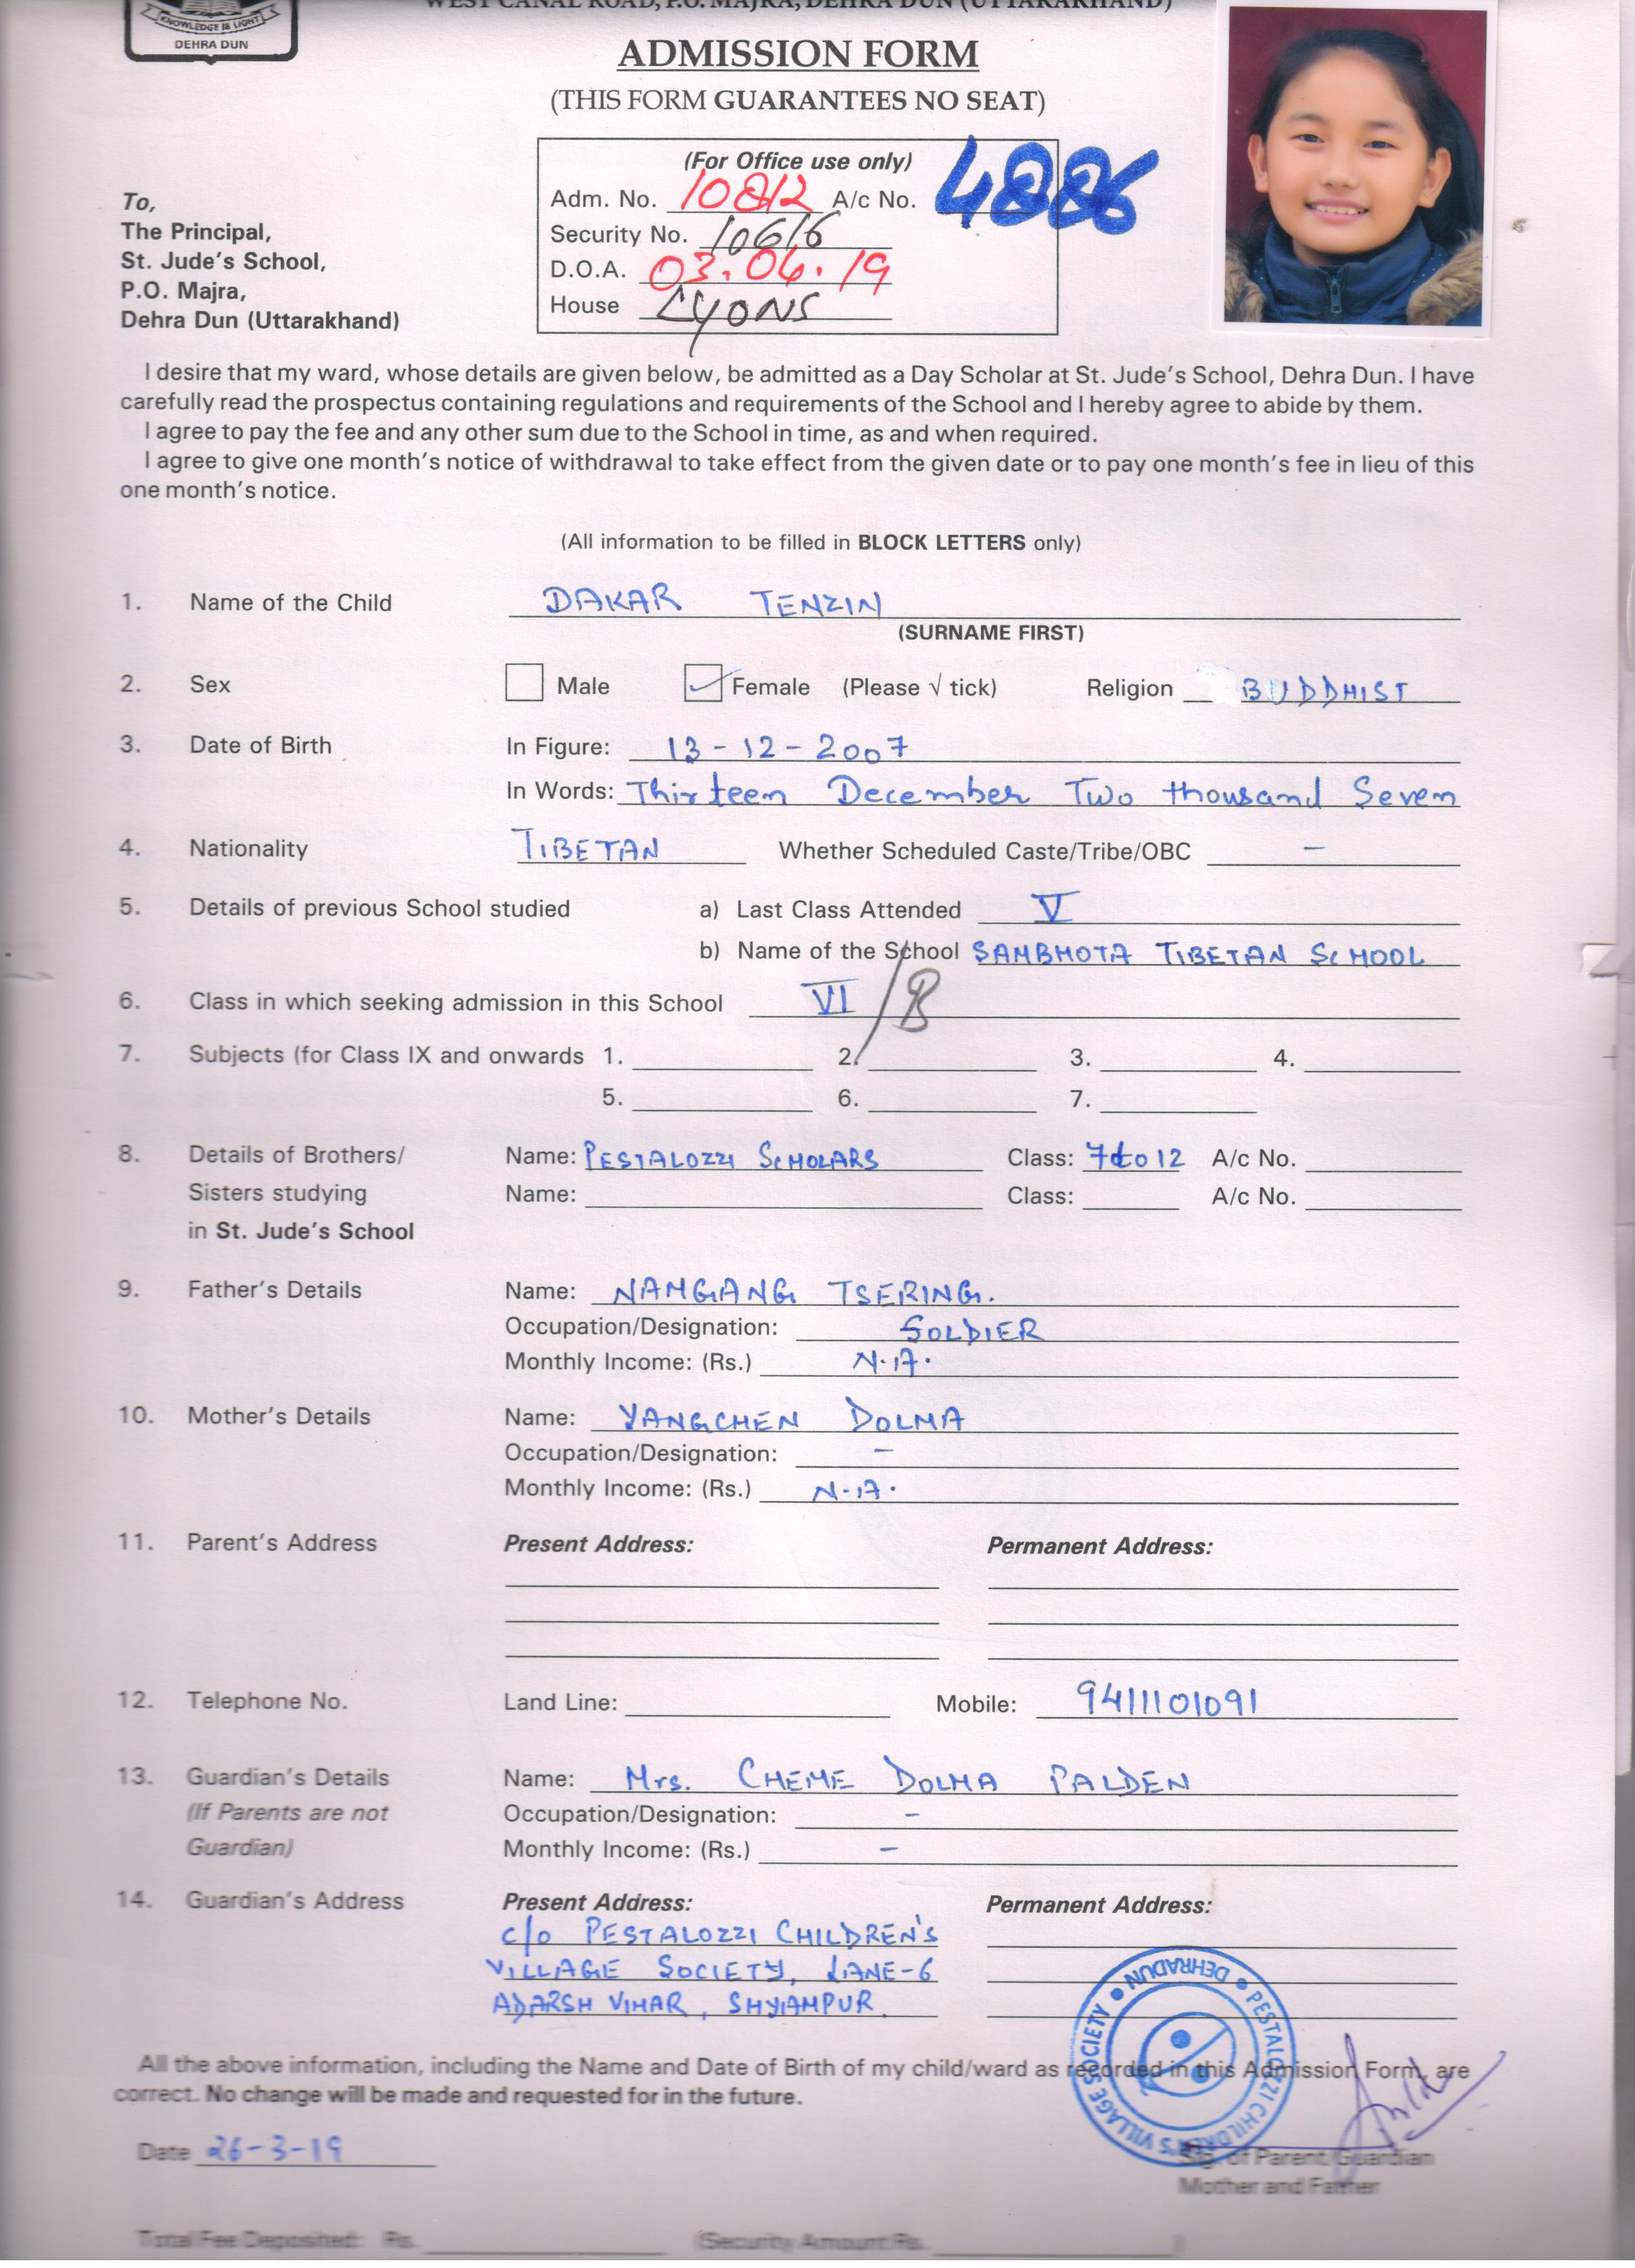 WEST CANAL ROAD, P.O. MAJRA, DEHRA DUN (UTTARAKHAND)
KNOWLEDGE IS LIGHT
DEHRA DUN
ADMISSION FORM
(THIS FORM GUARANTEES NO SEAT)
(For Office use only)
Adm. No. 10812 A/c No. 4886
Security No. 10616
D.O.A. 03.04.19
House LYONS
To,
The Principal,
St. Jude's School,
P.O. Majra,
Dehra Dun (Uttarakhand)
I desire that my ward, whose details are given below, be admitted as a Day Scholar at St. Jude's School, Dehra Dun. I have
carefully read the prospectus containing regulations and requirements of the School and I hereby agree to abide by them.
I agree to pay the fee and any other sum due to the School in time, as and when required.
I agree to give one month's notice of withdrawal to take effect from the given date or to pay one month's fee in lieu of this
one month's notice.
(All information to be filled in BLOCK LETTERS only)
1. Name of the Child DAKAR TENZIN
(SURNAME FIRST)
2. Sex Male Female (Please √ tick) Religion BUDDHIST
3. Date of Birth In Figure: 13-12-2007
In Words: Thirteen December Two thousand Seven
4. Nationality TIBETAN Whether Scheduled Caste/Tribe/OBC -
5. Details of previous School studied a) Last Class Attended V
b) Name of the School SAMBHOTA TIBETAN SCHOOL
6. Class in which seeking admission in this School VI/B
7. Subjects (for Class IX and onwards 1. 2. 3. 4.
5. 6. 7.
8. Details of Brothers/ Name: PESTALOZZI SCHOLARS Class: 7 to 12 A/c No.
Sisters studying Name: Class: A/c No.
in St. Jude's School
9. Father's Details Name: NAMGANG TSERING.
Occupation/Designation: SOLDIER
Monthly Income: (Rs.) N.A.
10. Mother's Details Name: YANGCHEN DOLMA
Occupation/Designation: -
Monthly Income: (Rs.) N.A.
11. Parent's Address Present Address: Permanent Address:
12. Telephone No. Land Line: Mobile: 9411101091
13. Guardian's Details Name: Mrs. CHEME DOLMA PALDEN
(If Parents are not Occupation/Designation: -
Guardian) Monthly Income: (Rs.) -
14. Guardian's Address Present Address: Permanent Address:
c/o PESTALOZZI CHILDREN'S
VILLAGE SOCIETY, LANE-6
ADARSH VIHAR, SHYAMPUR
PESTALOZZI CHILDREN'S VILLAGE SOCIETY • DEHRADUN •
All the above information, including the Name and Date of Birth of my child/ward as recorded in this Admission Form, are
correct. No change will be made and requested for in the future.
Date 26-3-19
Sig. of Parent/Guardian
Mother and Father
Total Fee Deposited: Rs. (Security Amount Rs. )